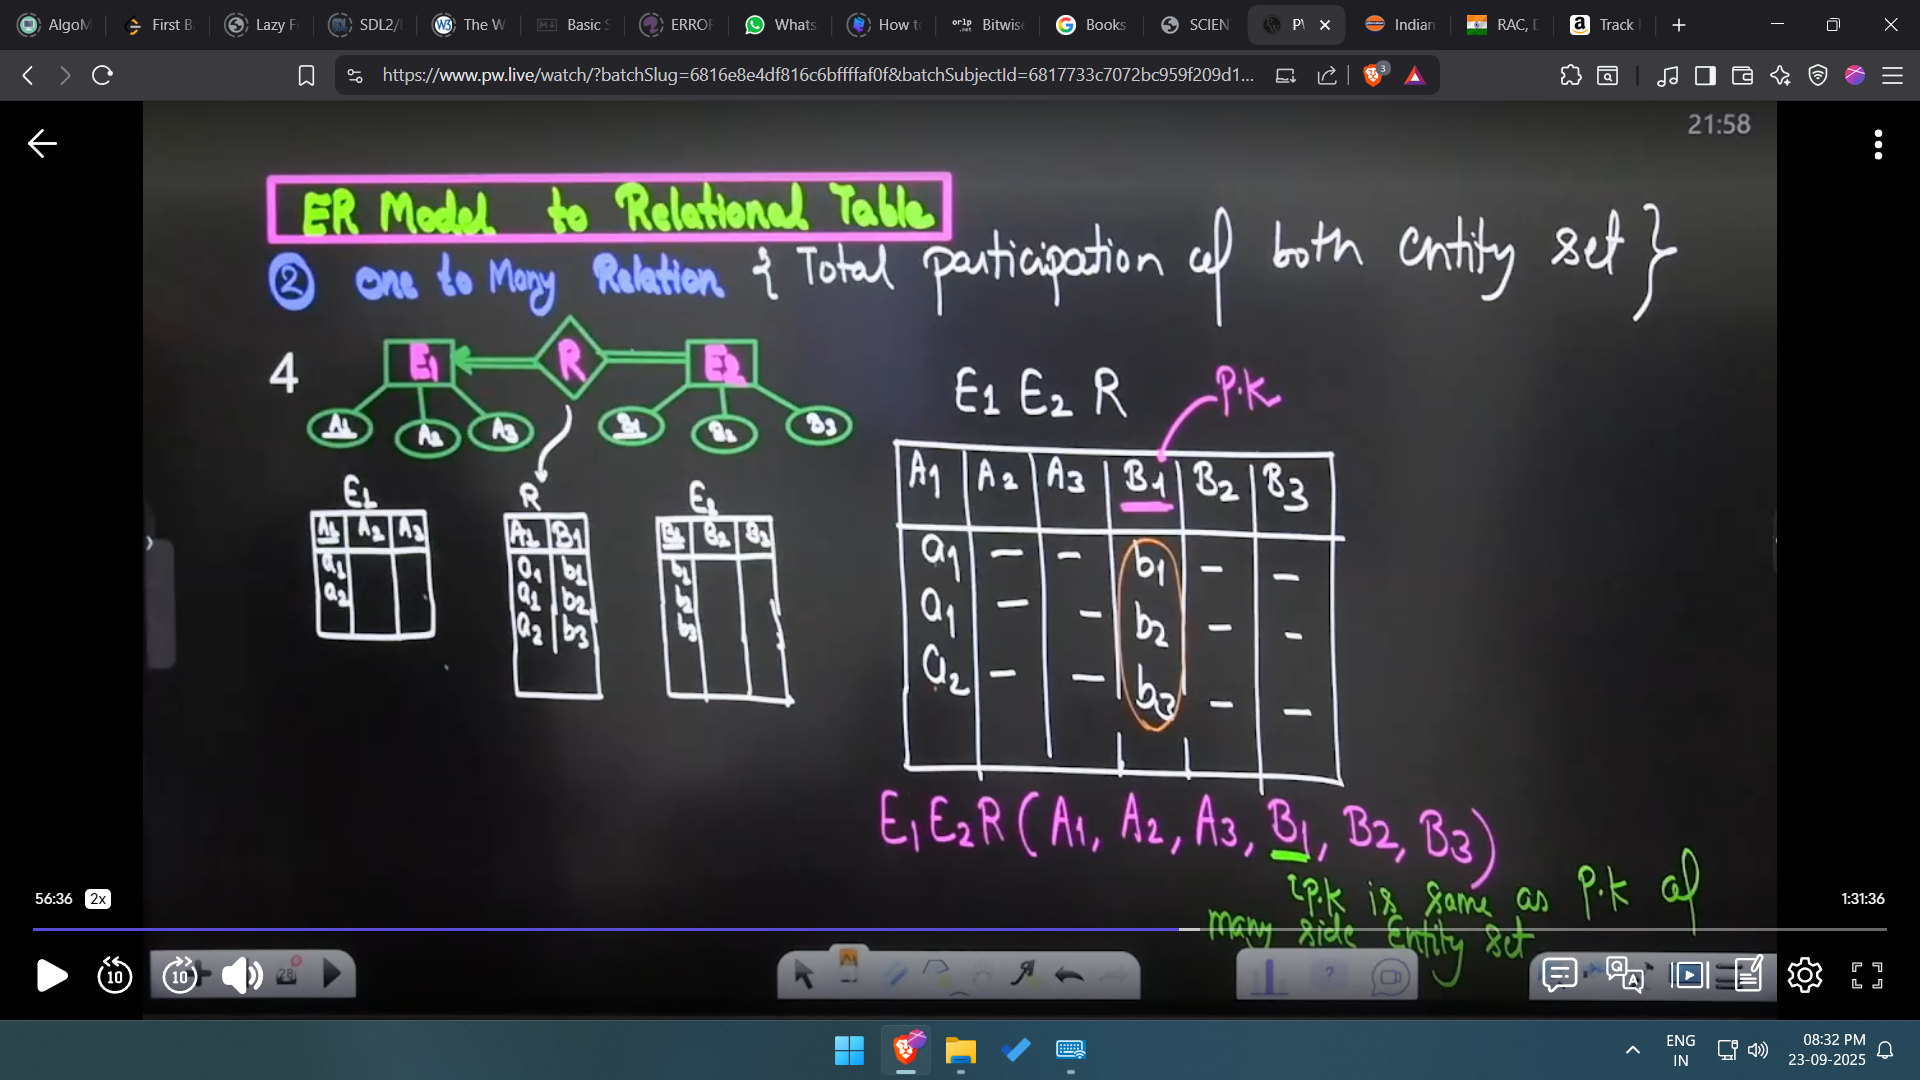 AlgoM
First B
Lazy F
SDL2/
The W
Basic S
ERROR
Whats
How t
orlp .net
Bitwis
Books
SCIEN
PW
Indian
RAC,
Track
https://www.pw.live/watch/?batchSlug=6816e8e4df816c6bffffaf0f&batchSubjectId=6817733c7072bc959f209d1...
3
21:58
ER Model to Relational Table
② One to Many Relation { Total participation of both entity set }
4
E1 R E2
A1 A2 A3 B1 B2 B3
E1 E2 R P.K
E1
A1 A2 A3
a1
a2
R
A1 B1
a1 b1
a1 b2
a2 b3
E2
B1 B2 B3
b1
b2
b3
A1 A2 A3 B1 B2 B3
a1 – – b1 – –
a1 – – b2 – –
a2 – – b3 – –
E1E2R (A1, A2, A3, B1, B2, B3)
P.K is same as P.K of
many side entity set
56:36 2x
1:31:36
10
10
28
ENG
IN
08:32 PM
23-09-2025